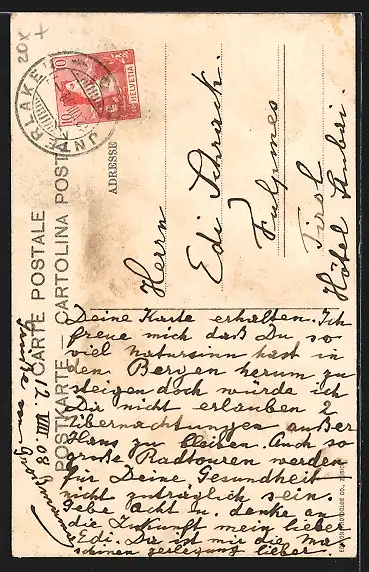 20X
+
10
10
HELVETIA
JNTERLAKEN
CARTE POSTALE
POSTKARTE — CARTOLINA POSTALE
ADRESSE
Herrn
Edi Schrack.
Fulpmes
Tirol
Hôtel Stubai.
Deine Karte erhalten. Ich
freue mich daß Du so
viel Natursinn hast in
den Bergen herum zu
steigen doch würde ich
Dir nicht erlauben 2
Übernachtungen außer
Haus zu bleiben. Auch so
große Radtouren werden
für Deine Gesundheit
nicht zuträglich sein.
Gebe acht u. denke an
die Zukunft mein lieber
Edi. Da ist mir die Ma
schinen zerlegung lieber.
12. VIII. 08